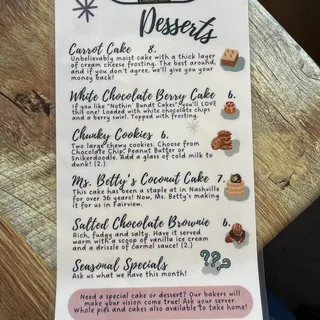 Desserts
Carrot Cake 8.
Unbelievably moist cake with a thick layer
of cream cheese frosting. The best around,
and if you don't agree, we'll give you your
money back!
White Chocolate Berry Cake 6.
If you like "Nothin' Bundt Cakes" you'll LOVE
this one! Loaded with white chocolate chips
and a berry swirl. Topped with frosting.
Chunky Cookies 6.
Two large chewy cookies. Choose from
Chocolate Chip, Peanut Butter or
Snikerdoodle. Add a glass of cold milk to
dunk! (2.)
Ms. Betty's Coconut Cake 7.
This cake has been a staple at in Nashville
for over 36 years! Now, Ms. Betty's making
it for us in Fairview.
Salted Chocolate Brownie 6.
Rich, fudgy and salty. Have it served
warm with a scoop of vanilla ice cream
and a drizzle of carmel sauce! (2.)
Seasonal Specials
Ask us what we have this month!
???
Need a special cake or dessert? Our bakers will
make your vision come true! Ask your server.
Whole pies and cakes also available to take home!